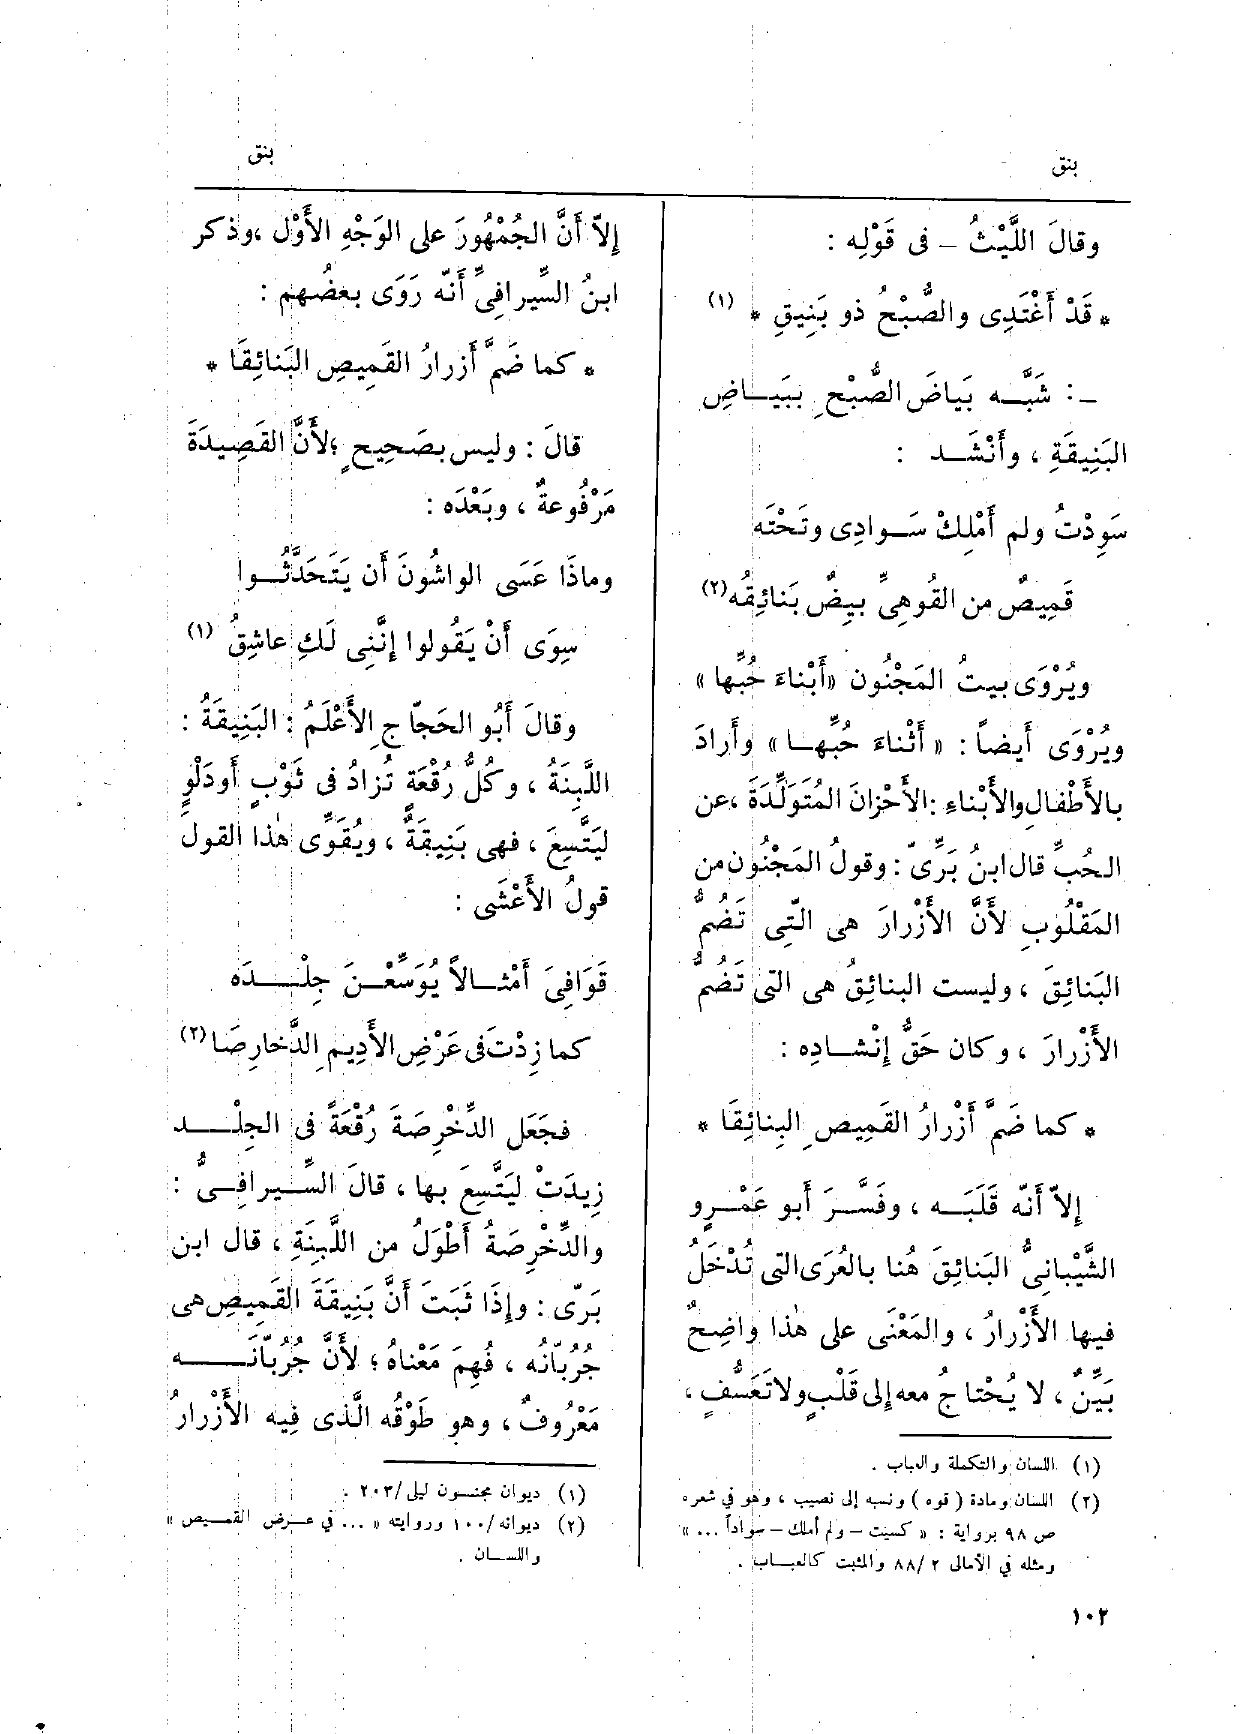 بنق
بنق
وقالَ اللَّيْثُ – فى قَوْلِه :
* قَدْ أَغْتَدِى والصُّبْحُ ذو بَنِيقِ * (١)
– : شَبَّـه بَيَاضَ الصُّبْحِ ببَيـاضِ
البَنِيقَةِ ، وأَنْشَـد :
سَوِدْتُ ولم أَمْلِكْ سَـوادِى وتَحْتَه
قَمِيصٌ من القُوهِىِّ بِيضٌ بَنائِقُه (٢)
ويُرْوَى بيتُ المَجْنُون «أَبْناءَ حُبِّها »
ويُرْوَى أَيضاً : « أَثْناءَ حُبِّهـا » وأَرادَ
بالأَطْفالِ والأَبْناءِ : الأَحْزانَ المُتَوَلِّدَةَ ، عن
الحُبِّ قال ابنُ بَرِّىّ : وقولُ المَجْنُون من
المَقْلُوبِ لأَنَّ الأَزْرارَ هى الّتِى تَضُمُّ
البَنائِقَ ، وليست البنائِقُ هى التى تَضُمُّ
الأَزْرارَ ، وكان حَقُّ إِنْشـادِه :
* كما ضَمَّ أَزْرارُ القَمِيصِ البنائِقَا *
إِلاّ أَنّه قَلَبَـه ، وفَسَّـرَ أَبو عَمْـرٍو
الشَّيْبانِىُّ البَنائِقَ هُنا بالعُرَى التى تُدْخَلُ
فيها الأَزْرارُ ، والمَعْنَى على هٰذا واضِحٌ
بَيِّنٌ ، لا يُحْتاجُ معه إِلى قَلْبٍ ولا تَعَسُّفٍ ،
(١) اللسان والتكملة والعباب .
(٢) اللسان ومادة ( قوه ) ونسبه إلى نصيب ، وهو في شعره
ص ٩٨ برواية : « كسيت – ولم أملك – سواداً ... »
ومثله في الأمالى ٢ /٨٨ والمثبت كالعبـاب .
إِلاّ أَنَّ الجُمْهُورَ على الوَجْهِ الأَوّل ، وذكر
ابنُ السِّيرافِىِّ أَنّه رَوَى بعضُهم :
* كما ضَمَّ أَزرارُ القَمِيصِ البَنائِقَا *
قالَ : وليس بصَحِيحٍ ؛ لأَنَّ القَصِيدَةَ
مَرْفُوعةٌ ، وبَعْدَه :
وماذَا عَسَى الواشُونَ أَن يَتَحَدَّثُـوا
سِوَى أَنْ يَقُولوا إِنَّنِى لَكِ عاشِقُ (١)
وقالَ أَبُو الحَجّاجِ الأَعْلَمُ : البَنِيقَةُ :
اللَّبِنَةُ ، وكُلُّ رُقْعَةٍ تُزادُ فى ثَوْبٍ أَو دَلْوٍ
ليَتَّسِعَ ، فهى بَنِيقَةٌ ، ويُقَوِّى هٰذا القول
قولُ الأَعْشَى :
قَوَافِىَ أَمْثـالاً يُوَسِّعْـنَ جِلْـدَه
كما زِدْتَ فى عَرْضِ الأَدِيمِ الدَّخارِصَا (٢)
فجَعَل الدِّخْرِصَةَ رُقْعَةً فى الجِلْـد
زِيدَتْ ليَتَّسِعَ بها ، قالَ السِّـيرافِـىُّ :
والدِّخْرِصَةُ أَطْوَلُ من اللَّبِنَةِ ، قال ابن
بَرّى : وإِذَا ثَبَتَ أَنَّ بَنِيقَةَ القَمِيصِ هى
جُرُبّانُه ، فُهِمَ مَعْناهُ ؛ لأَنَّ جُرُبّانَـه
مَعْرُوفٌ ، وهو طَوْقُه الَّذى فِيه الأَزْرارُ
(١) ديوان مجنـون ليلى /٢٠٣ .
(٢) ديوانه /١٠٠ وروايته « ... في عـرض القمـيص »
واللسـان .
١٠٢